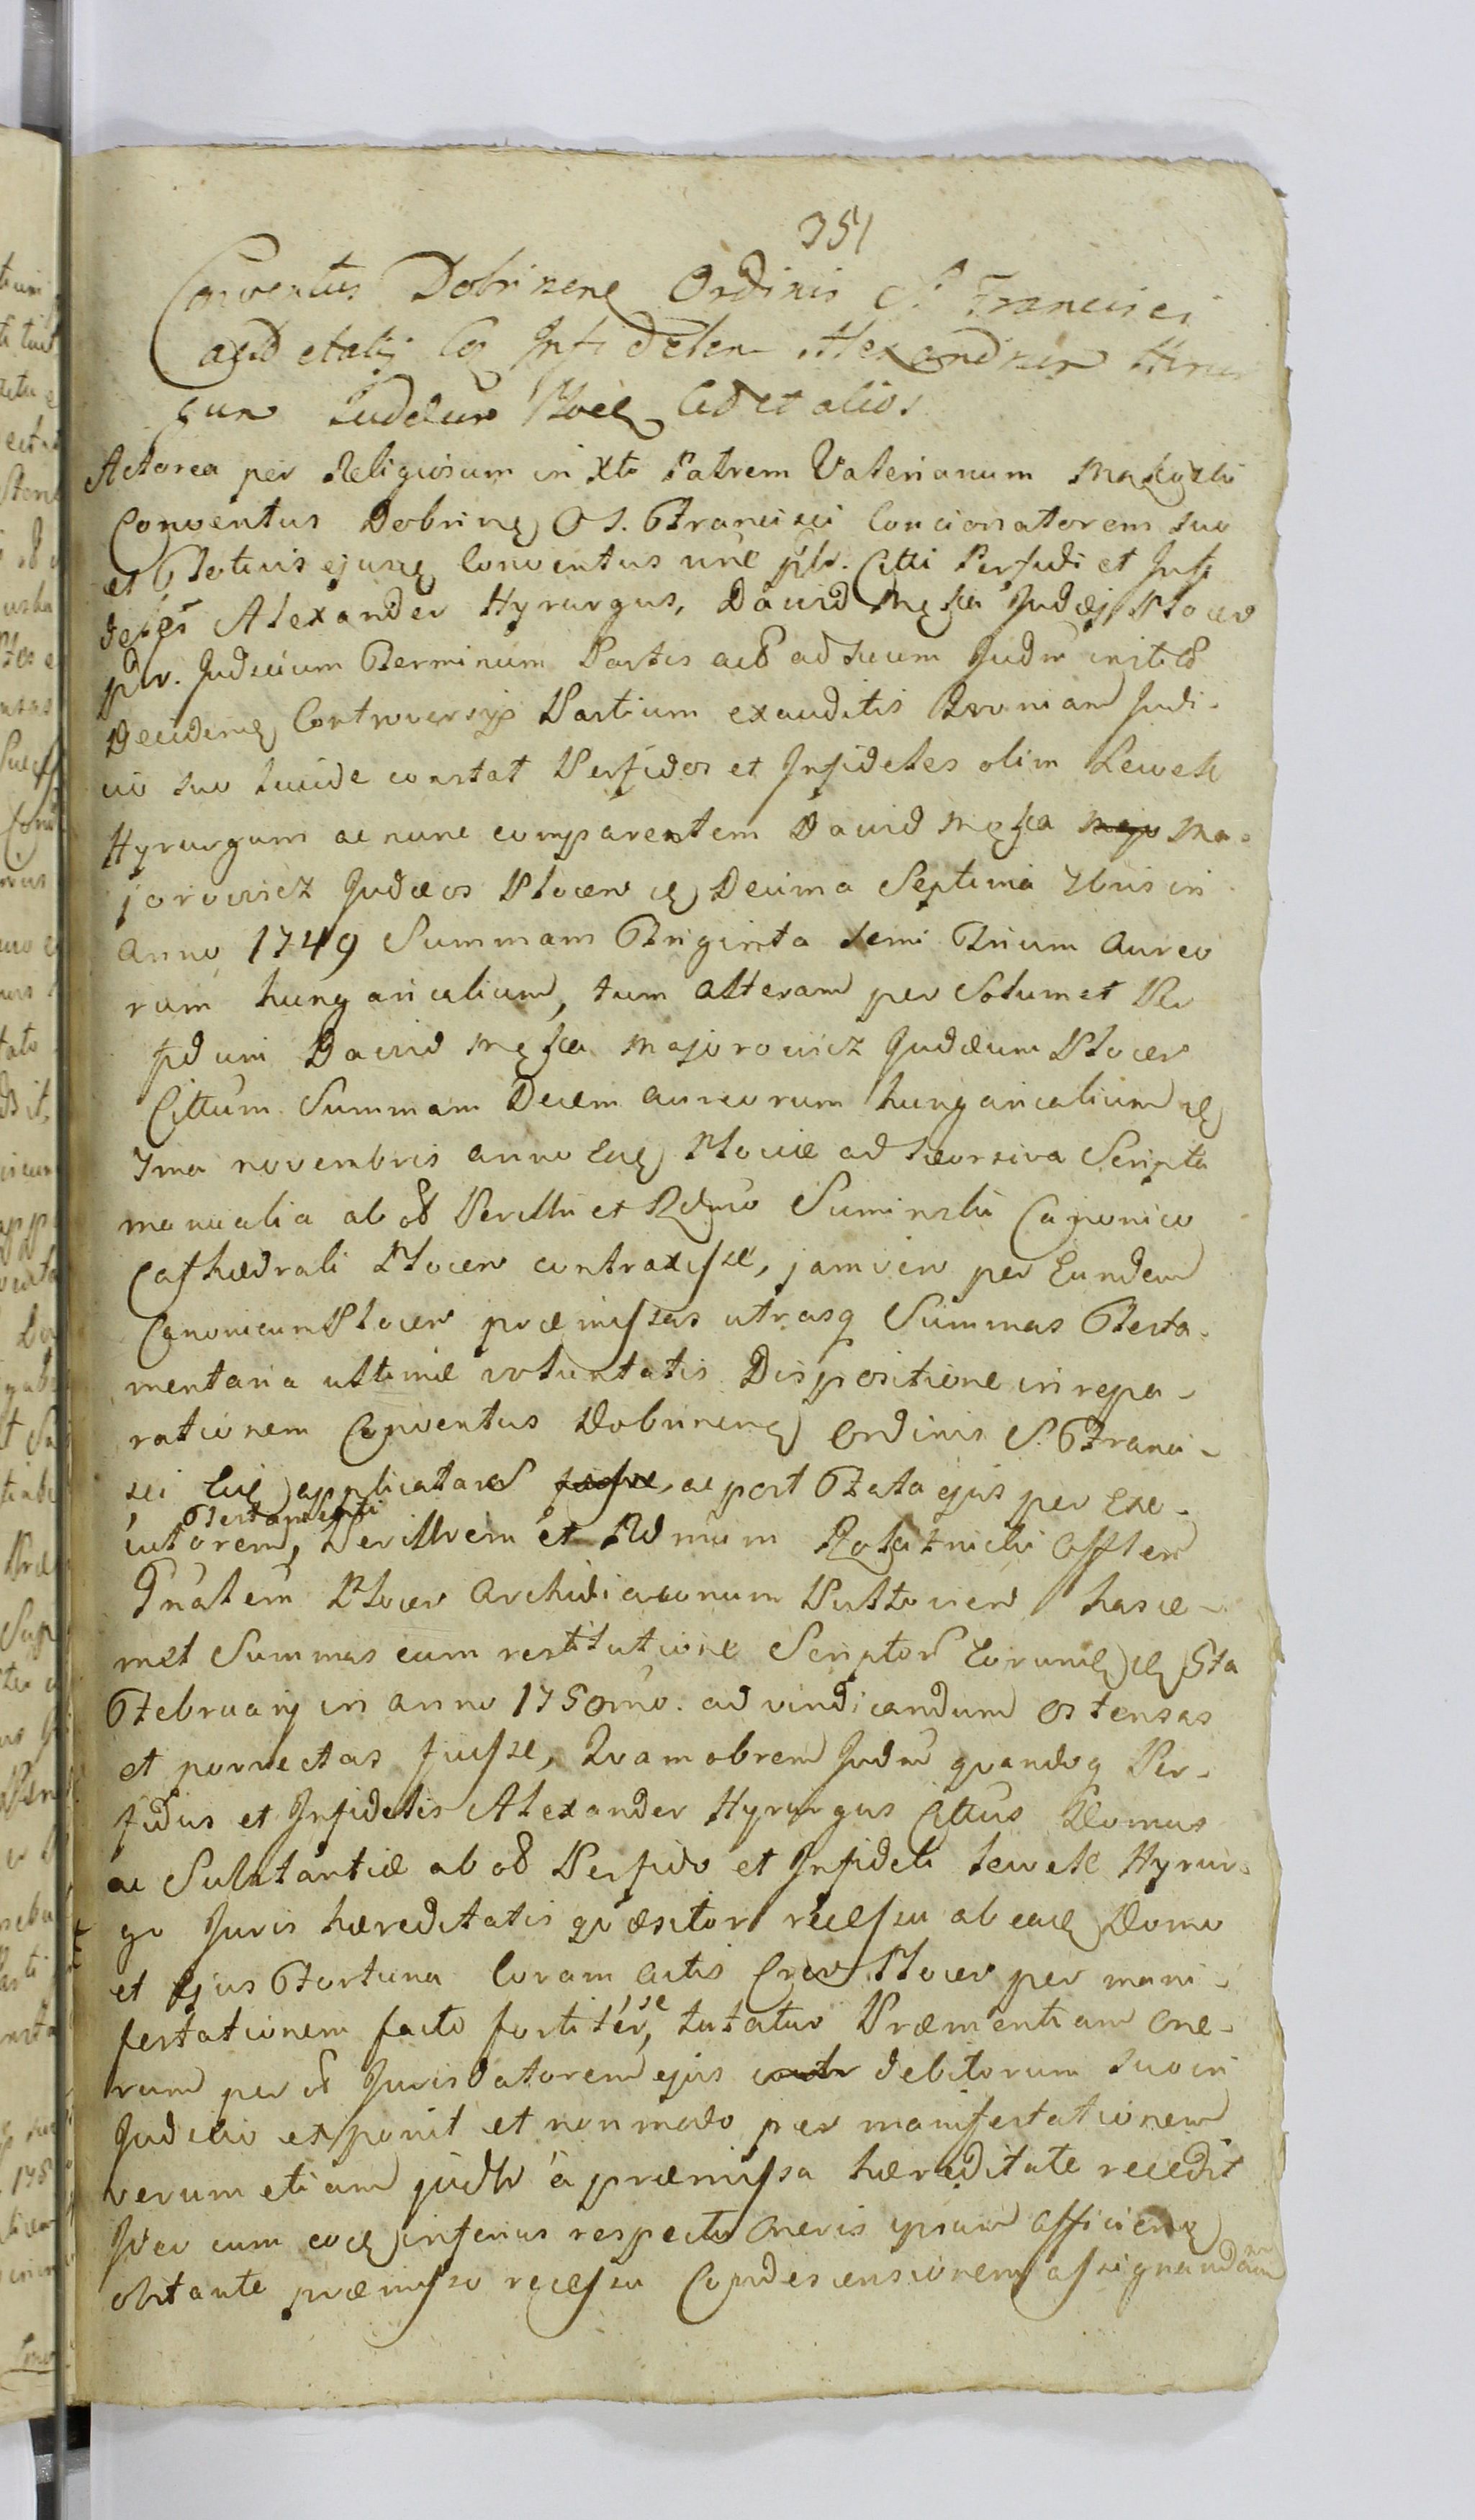 351
Conventus Dobrinenẹ Ordinis S. Francisci
act et alij Co Infidelem Alexandrum Hirur
gum Judæum Plocẹ Citt et alios
Actorea per Religiosum in Xto Patrem Valerianum
Conventus Dobrinẹ O S. Francisci Concionatorem suo
et Totius ejusẹ Conventus nñe plr. Citti Perfidi et Infi
deles Alexander Hyrurgus, David Judæj Plocen
plr. Judicium Terminum Partis act ad suum Judm
Decidenẹ Controversijs Partium exauditis Judi-
cio suo lucide constat Perfidos et Infideles olim Lewek
Hyrurgum ac nunc comparentem David Ma-
jorowicz Judæos Plocen Decima Septima 7bris in
anno 1749 Summam Triginta semi Trium aureo
rum hungaricalium, tum alteram per Solum et Per
fidum David Majorowicz Judæum Plocen
Cittum Summam Decem aureorum hungaricalium
7ma novembris anno Eoẹ Plociæ ad seorsiva Scripta
manualia ab oð Perillri et Rdmo Canonico
Cathedrali Plocen contraxisse, jam vero per Eundem
Canonicum Plocen præmissas utrasq Summas Testa-
mentaria ultimæ voluntatis Dispositione in repa-
rationem Conventus Dobrinenẹ Ordinis S. Franci-
sci applicatas fuisse, ac post Fata ejus per Exe-
cutorem Testamenti, Perillrem et Rdmum Offlem
Gnalem Plocen Archidiaconum Pultovien hasce-
met Summas cum restitutione Scriptor Eorumẹ 5ta
Februarij in anno 1750mo. ad vindicandum ostensas
et porrectas fuisse, Quamobrem Judm quandoq Per-
fidus et Infidelis Alexander Hyrurgus Cittus Domus
ac Substantiæ ab oð Perfido et Infideli Lewek Hyrur-
go Juris hæreditatis quæsitor recessu ab eaẹ Domo
et Ejus Fortuna Coram actis Plocen per mani-
festationem facto fortiter, se tutatur Præmentiam one-
rum per Juris datorem ejus debitorum suo in
Judicio exponit et non modo per manifestationem
verum etiam judlr à præmissa hæreditate recedit
Ideo cum eoẹ inferius respectu oneris ipsum afficienẹ
obstante præmisso recessu Condescensionem assignandam